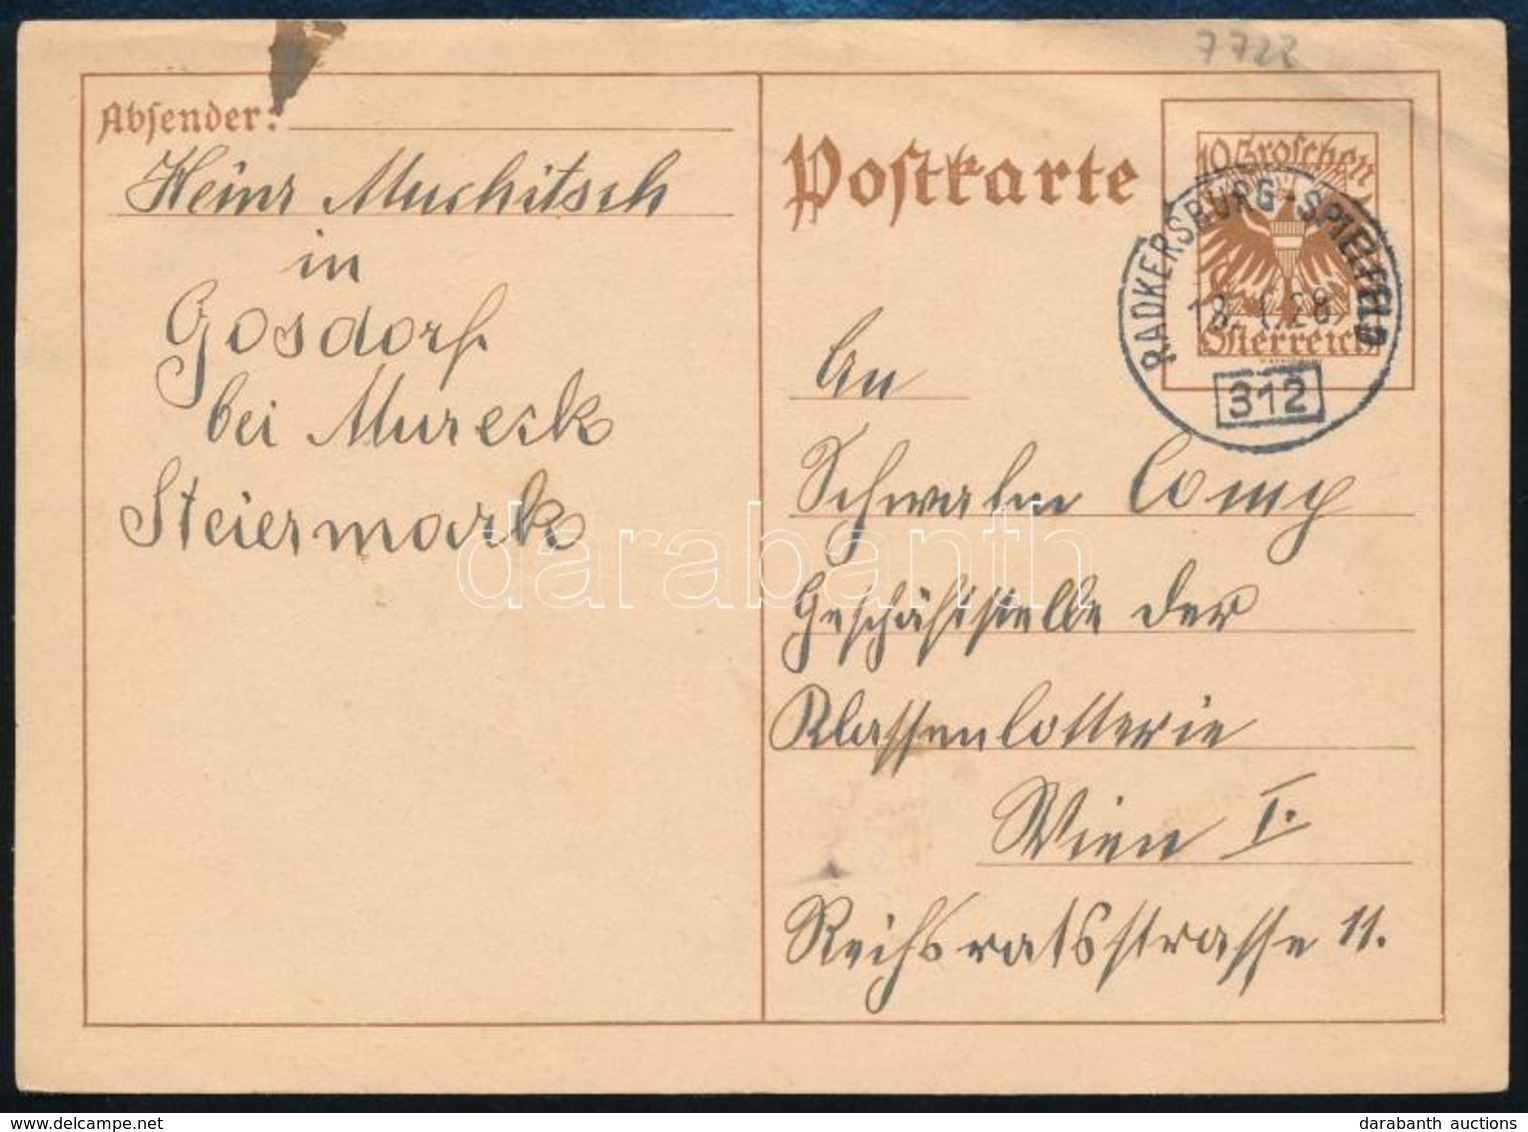 7722
Absender:
Heinz Muchitsch
in
Gosdorf
bei Mureck
Steiermark
Postkarte
10 Groschen
Österreich
RADKERSBURG-SPIELFELD
312
An
Schwalm Comp
Geschäftstelle der
Klassenlotterie
Wien I.
Reichsratsstrasse 11.
darabanth
darabanth auctions